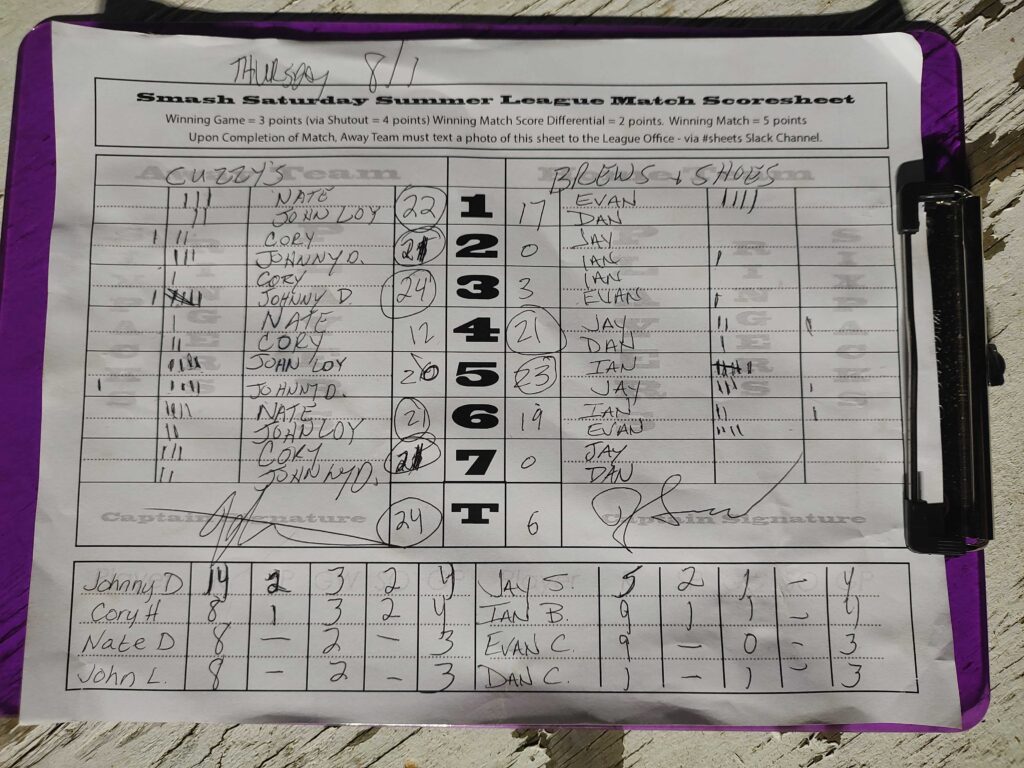 THURSDAY 8/1
Smash Saturday Summer League Match Scoresheet
Winning Game = 3 points (via Shutout = 4 points) Winning Match Score Differential = 2 points. Winning Match = 5 points
Upon Completion of Match, Away Team must text a photo of this sheet to the League Office - via #sheets Slack Channel.
CUZZY'S BREWS & SHOES
NATE 22 1 17 EVAN
JOHN LOY DAN
CORY 21 2 0 JAY
JOHNNY D. IAN
CORY 24 3 3 IAN
JOHNNY D. EVAN
NATE 12 4 21 JAY
CORY DAN
JOHN LOY 20 5 23 IAN
JOHNNY D. JAY
NATE 21 6 19 IAN
JOHN LOY EVAN
CORY 21 7 0 JAY
JOHNNY D. DAN
Captain Signature 24 T 6 Captain Signature
Johnny D 14 2 3 2 4 JAY S. 5 2 1 - 4
Cory H 8 1 3 2 4 IAN B. 9 1 1 - 4
Nate D 8 - 2 - 3 EVAN C. 9 - 0 - 3
John L. 8 - 2 - 3 DAN C. 1 - 1 - 3